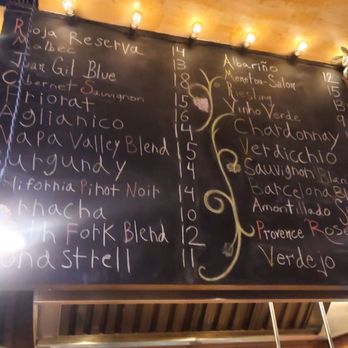 Rioja Reserva 14
Malbec
Juan Gil Blue 18
Cabernet Sauvignon
Priorat 15
Aglianico
Napa Valley Blend 15
Burgundy
California Pinot Noir 14
rnacha 10
th Fork Blend 12
strell 11
Albariño
Menetou-Salon
Riesling
Vinho Verde
Chardonnay
Verdicchio
Sauvignon Blan
Barcelona
Amontillado
Provence Rosé
Verdejo